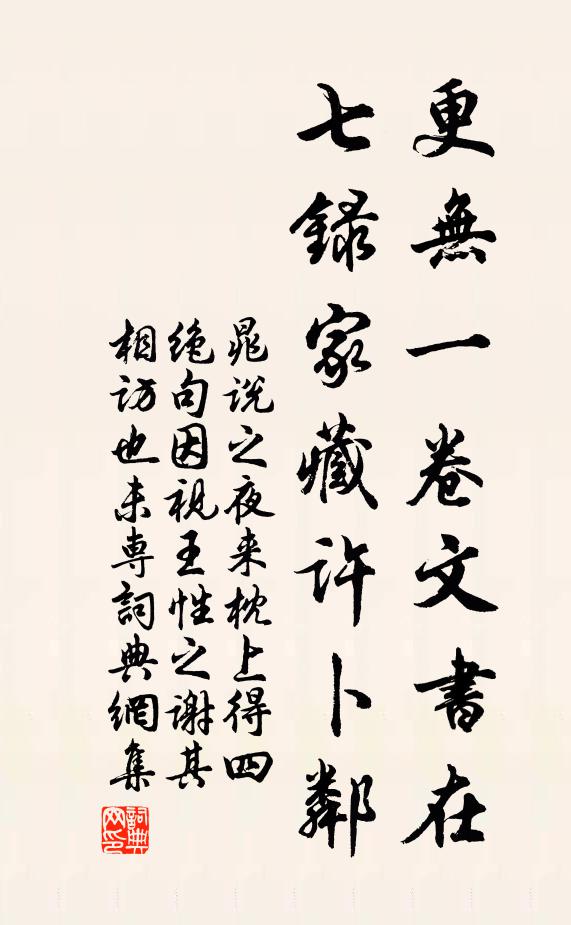 更無一卷文書在
七録家藏許卜鄰
晁説之夜来枕上得四
绝句因視王性之謝其
相訪也未専詞典網集
詞典网印